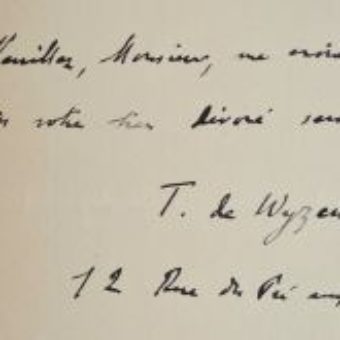 Veuillez, Monsieur, me croire
votre bien dévoué
T. de Wyzew
12 Rue du Pré